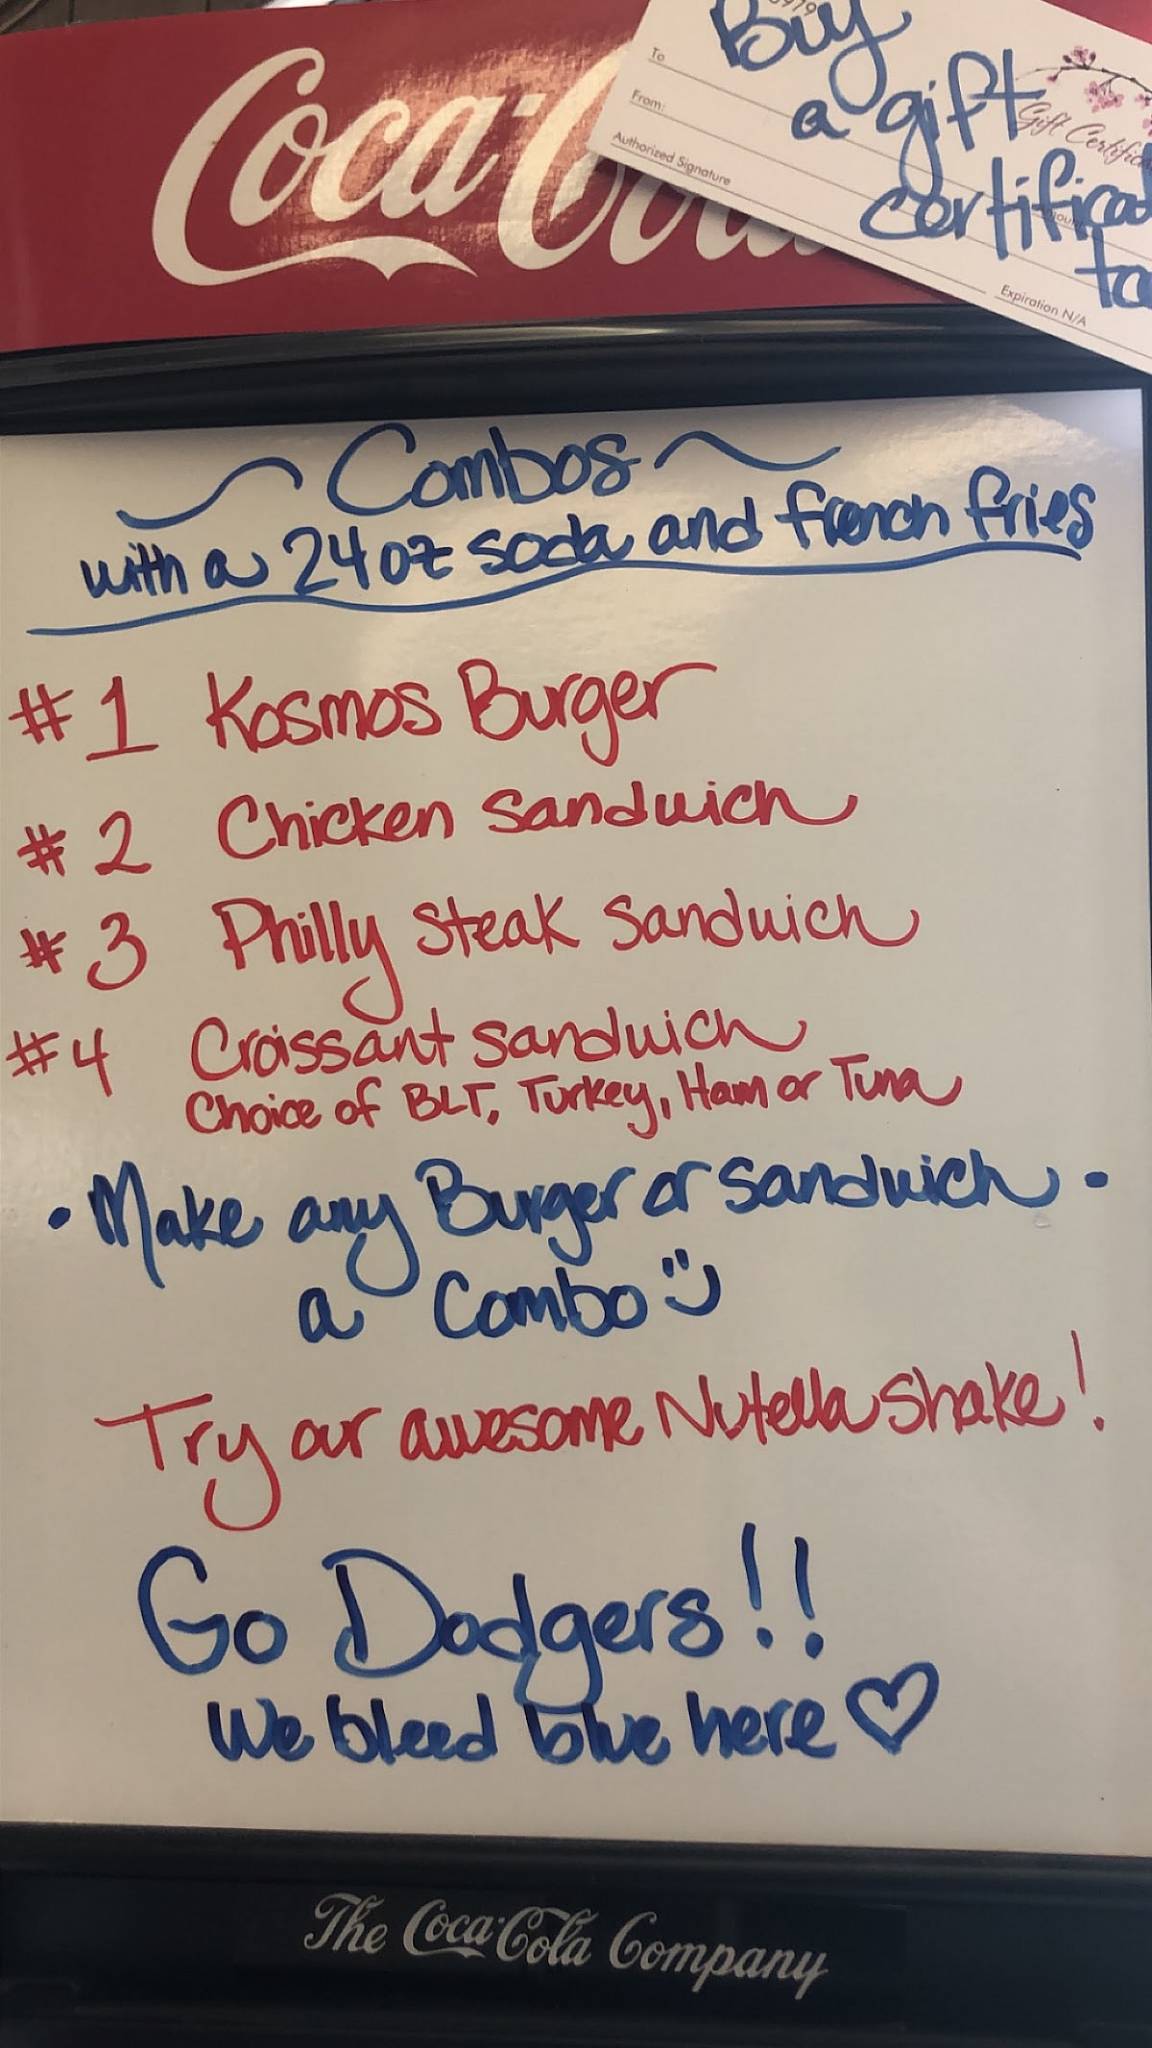 Coca-Cola
Buy
a gift
To
From:
Authorized Signature
Gift
Expiration N/A
Combos
with a 24oz soda and french fries
#1 Kosmos Burger
#2 Chicken Sandwich
#3 Philly Steak Sandwich
#4 Croissant Sandwich
Choice of BLT, Turkey, Ham or Tuna
• Make any Burger or Sandwich •
a Combo
Try our awesome Nutella Shake!
Go Dodgers!!
We bleed blue here ♡
The Coca-Cola Company